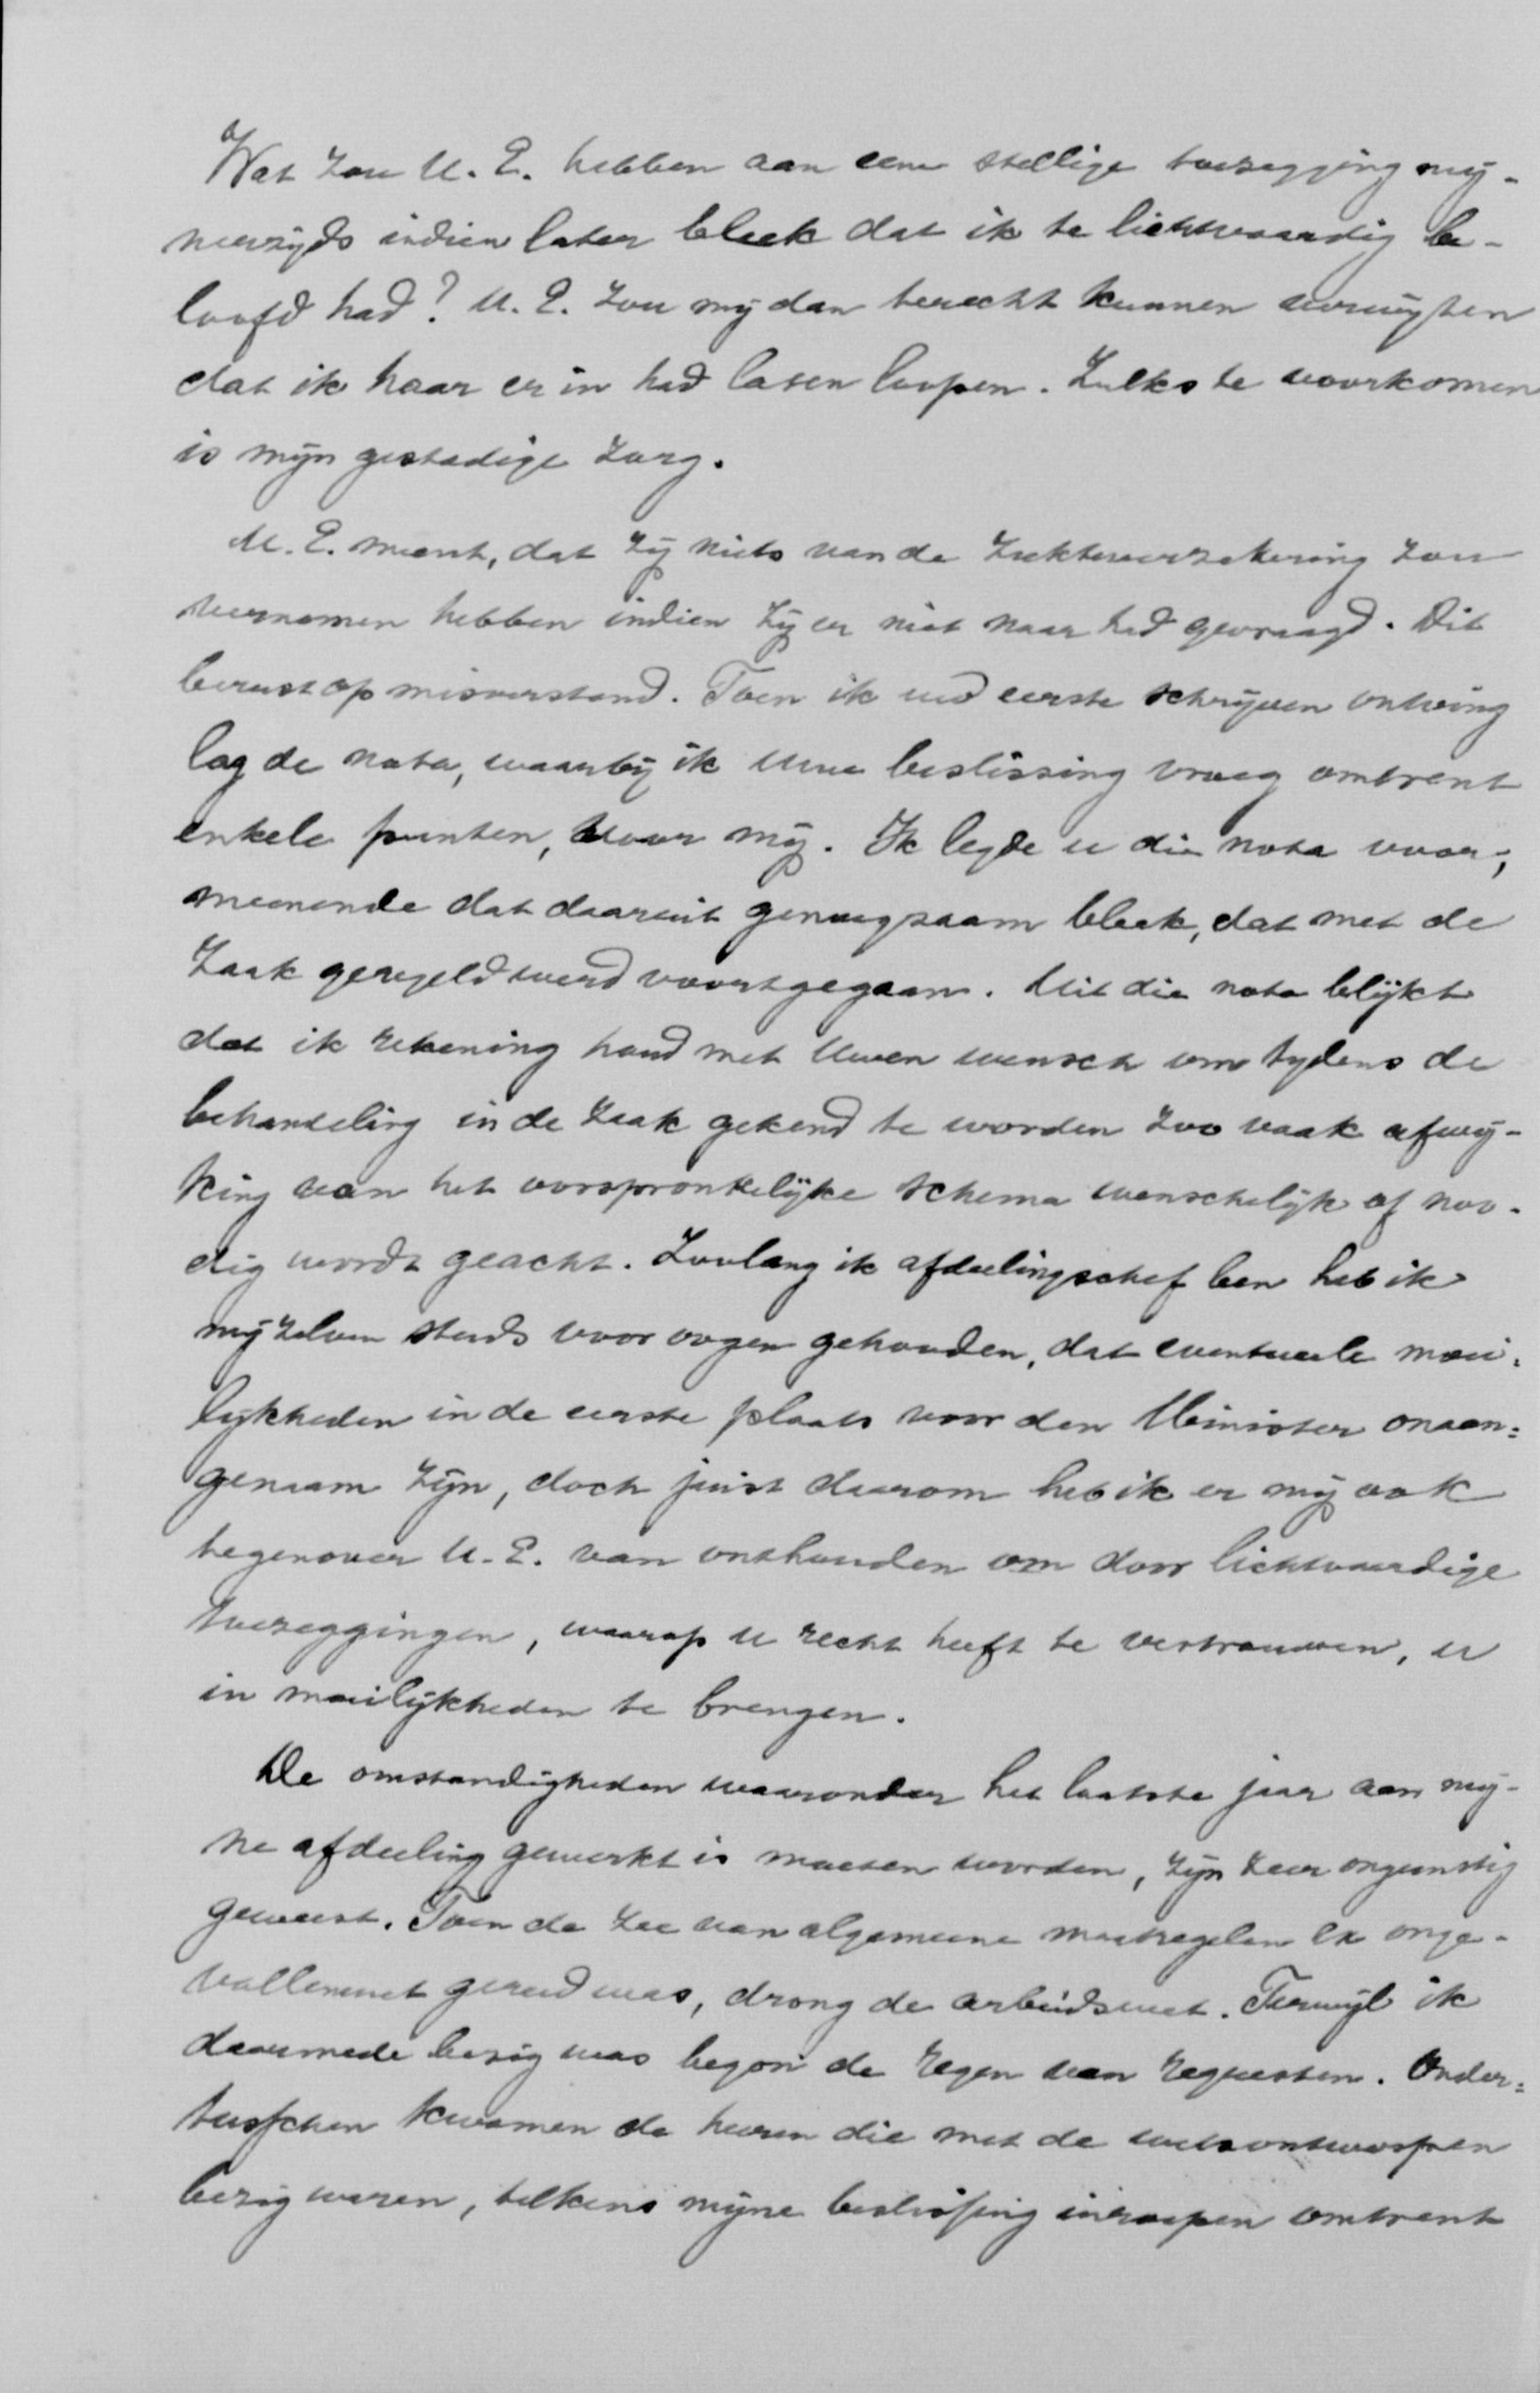 Wat zou U. E. hebben aan eene stellige toezegging mij-
nerzijds indien later bleek dat ik te lichtvaardig be-
loofd had? U. E. zou mij dan terecht kunnen verwijten
dat ik haar er in had laten loopen. Zulks te voorkomen
is mijn gestadige zorg.
U. E. meent, dat zij niets van de ziekteverzekering zou
vernomen hebben indien zij er niet naar had gevraagd. Dit
berust op misverstand. Toen ik uw eerste schrijven ontving
lag de nota, waarbij ik uwe beslissing vraag omtrent
enkele punten, voor mij. Ik legde u die nota voor,
meenende dat daaruit genoegzaam bleek, dat met de
zaak geregeld werd voortgegaan. Uit die nota blijkt
dat ik rekening houd met Uwen wensch om tijdens de
behandeling in de zaak gekend te worden zoo vaak afwij-
king van het oorspronkelijke schema wenschelijk of noo-
dig wordt geacht. Zoolang ik afdeelingschef ben heb ik
mijzelven steeds voor oogen gehouden, dat eventueele moei-
lijkheden in de eerste plaats voor den Minister onaan=
genaam zijn, doch juist daarom heb ik er mij ook
tegenover U. E. van onthouden om door lichtvaardige
toezeggingen, waarop u recht heeft te vertrouwen, u
in moeilijkheden te brengen.
De omstandigheden waaronder het laatste jaar aan mij-
ne afdeeling gewerkt is moeten worden, zijn zeer ongunstig
geweest. Toen de zee van algemeene maatregelen ex onge-
vallenwet gereed was, drong de arbeidswet. Terwijl ik
daarmede bezig was begon de regen van requesten. Onder=
tusschen kwamen de heeren die met de wetsontwerpen
bezig waren, telkens mijne beslissing inroepen omtrent